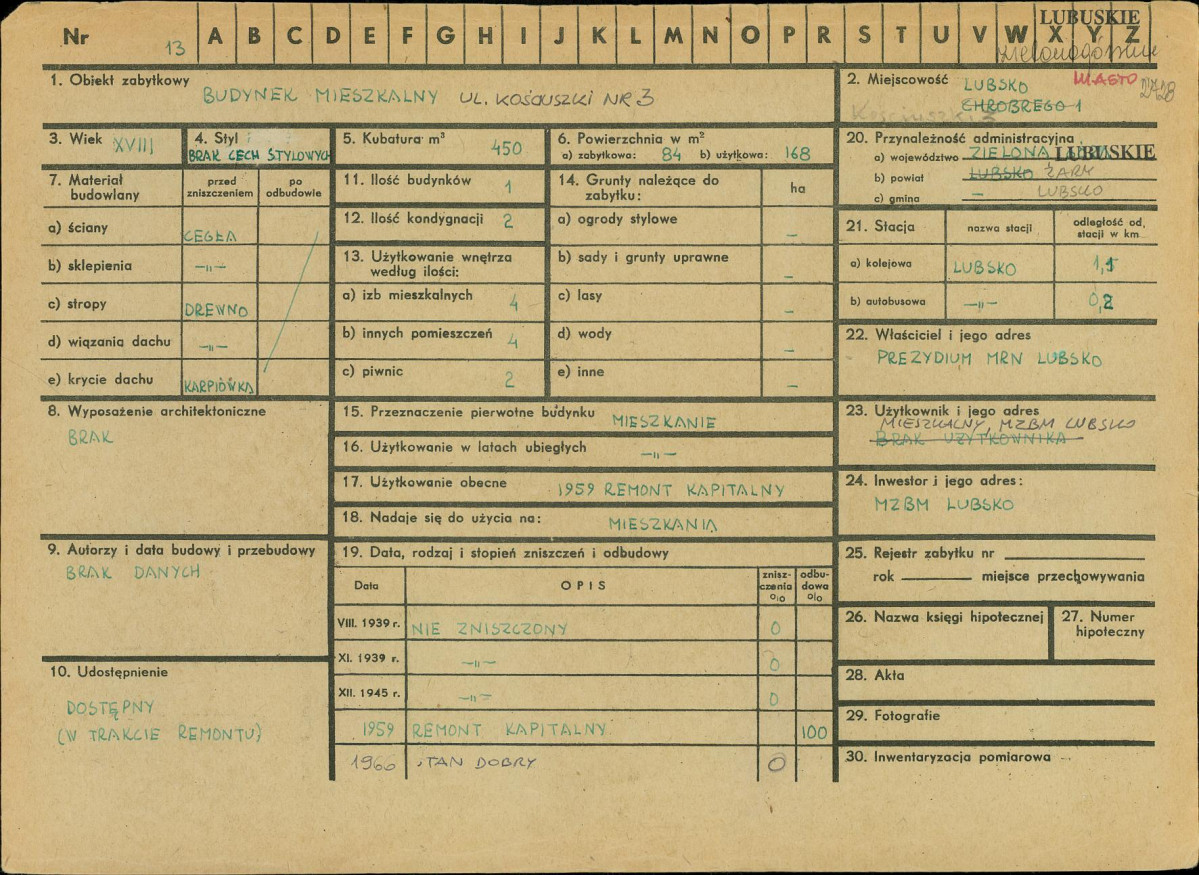 Nr 13 A B C D E F G H I J K L M N O P R S T U V W X Y Z
LUBUSKIE
1. Obiekt zabytkowy
BUDYNEK MIESZKALNY UL. KOŚCIUSZKI NR 3
2. Miejscowość LUBSKO MIASTO
CHROBREGO 1
Kościuszki 3
3. Wiek XVIII
4. Styl
BRAK CECH STYLOWYCH
5. Kubatura m³ 450
6. Powierzchnia w m²
a) zabytkowa: 84 b) użytkowa: 168
20. Przynależność administracyjna
a) województwo ZIELONA LUBUSKIE
b) powiat LUBSKO ŻARY
c) gmina – LUBSKO
7. Materiał budowlany
przed zniszczeniem
po odbudowie
a) ściany CEGŁA
b) sklepienia –„–
c) stropy DREWNO
d) wiązania dachu –„–
e) krycie dachu KARPIÓWKA
11. Ilość budynków 1
12. Ilość kondygnacji 2
13. Użytkowanie wnętrza
według ilości:
a) izb mieszkalnych 4
b) innych pomieszczeń 4
c) piwnic 2
14. Grunty należące do
zabytku:
ha
a) ogrody stylowe –
b) sady i grunty uprawne –
c) lasy –
d) wody –
e) inne –
21. Stacja
nazwa stacji
odległość od,
stacji w km
a) kolejowa LUBSKO 1,1
b) autobusowa –„– 0,2
22. Właściciel i jego adres
PREZYDIUM MRN LUBSKO
8. Wyposażenie architektoniczne
BRAK
15. Przeznaczenie pierwotne budynku MIESZKANIE
16. Użytkowanie w latach ubiegłych –„–
17. Użytkowanie obecne 1959 REMONT KAPITALNY
18. Nadaje się do użycia na: MIESZKANIA
23. Użytkownik i jego adres
MIESZKALNY, MZBM LUBSKO
BRAK UŻYTKOWNIKA
24. Inwestor i jego adres:
MZBM LUBSKO
9. Autorzy i data budowy i przebudowy
BRAK DANYCH
10. Udostępnienie
DOSTĘPNY
(W TRAKCIE REMONTU)
19. Data, rodzaj i stopień zniszczeń i odbudowy
Data
OPIS
znisz-
czenia
o/o
odbu-
dowa
o/o
VIII. 1939 r. NIE ZNISZCZONY 0
XI. 1939 r. –„– 0
XII. 1945 r. –„– 0
1959 REMONT KAPITALNY 100
1966 STAN DOBRY 0
25. Rejestr zabytku nr
rok miejsce przechowywania
26. Nazwa księgi hipotecznej
27. Numer
hipoteczny
28. Akta
29. Fotografie
30. Inwentaryzacja pomiarowa